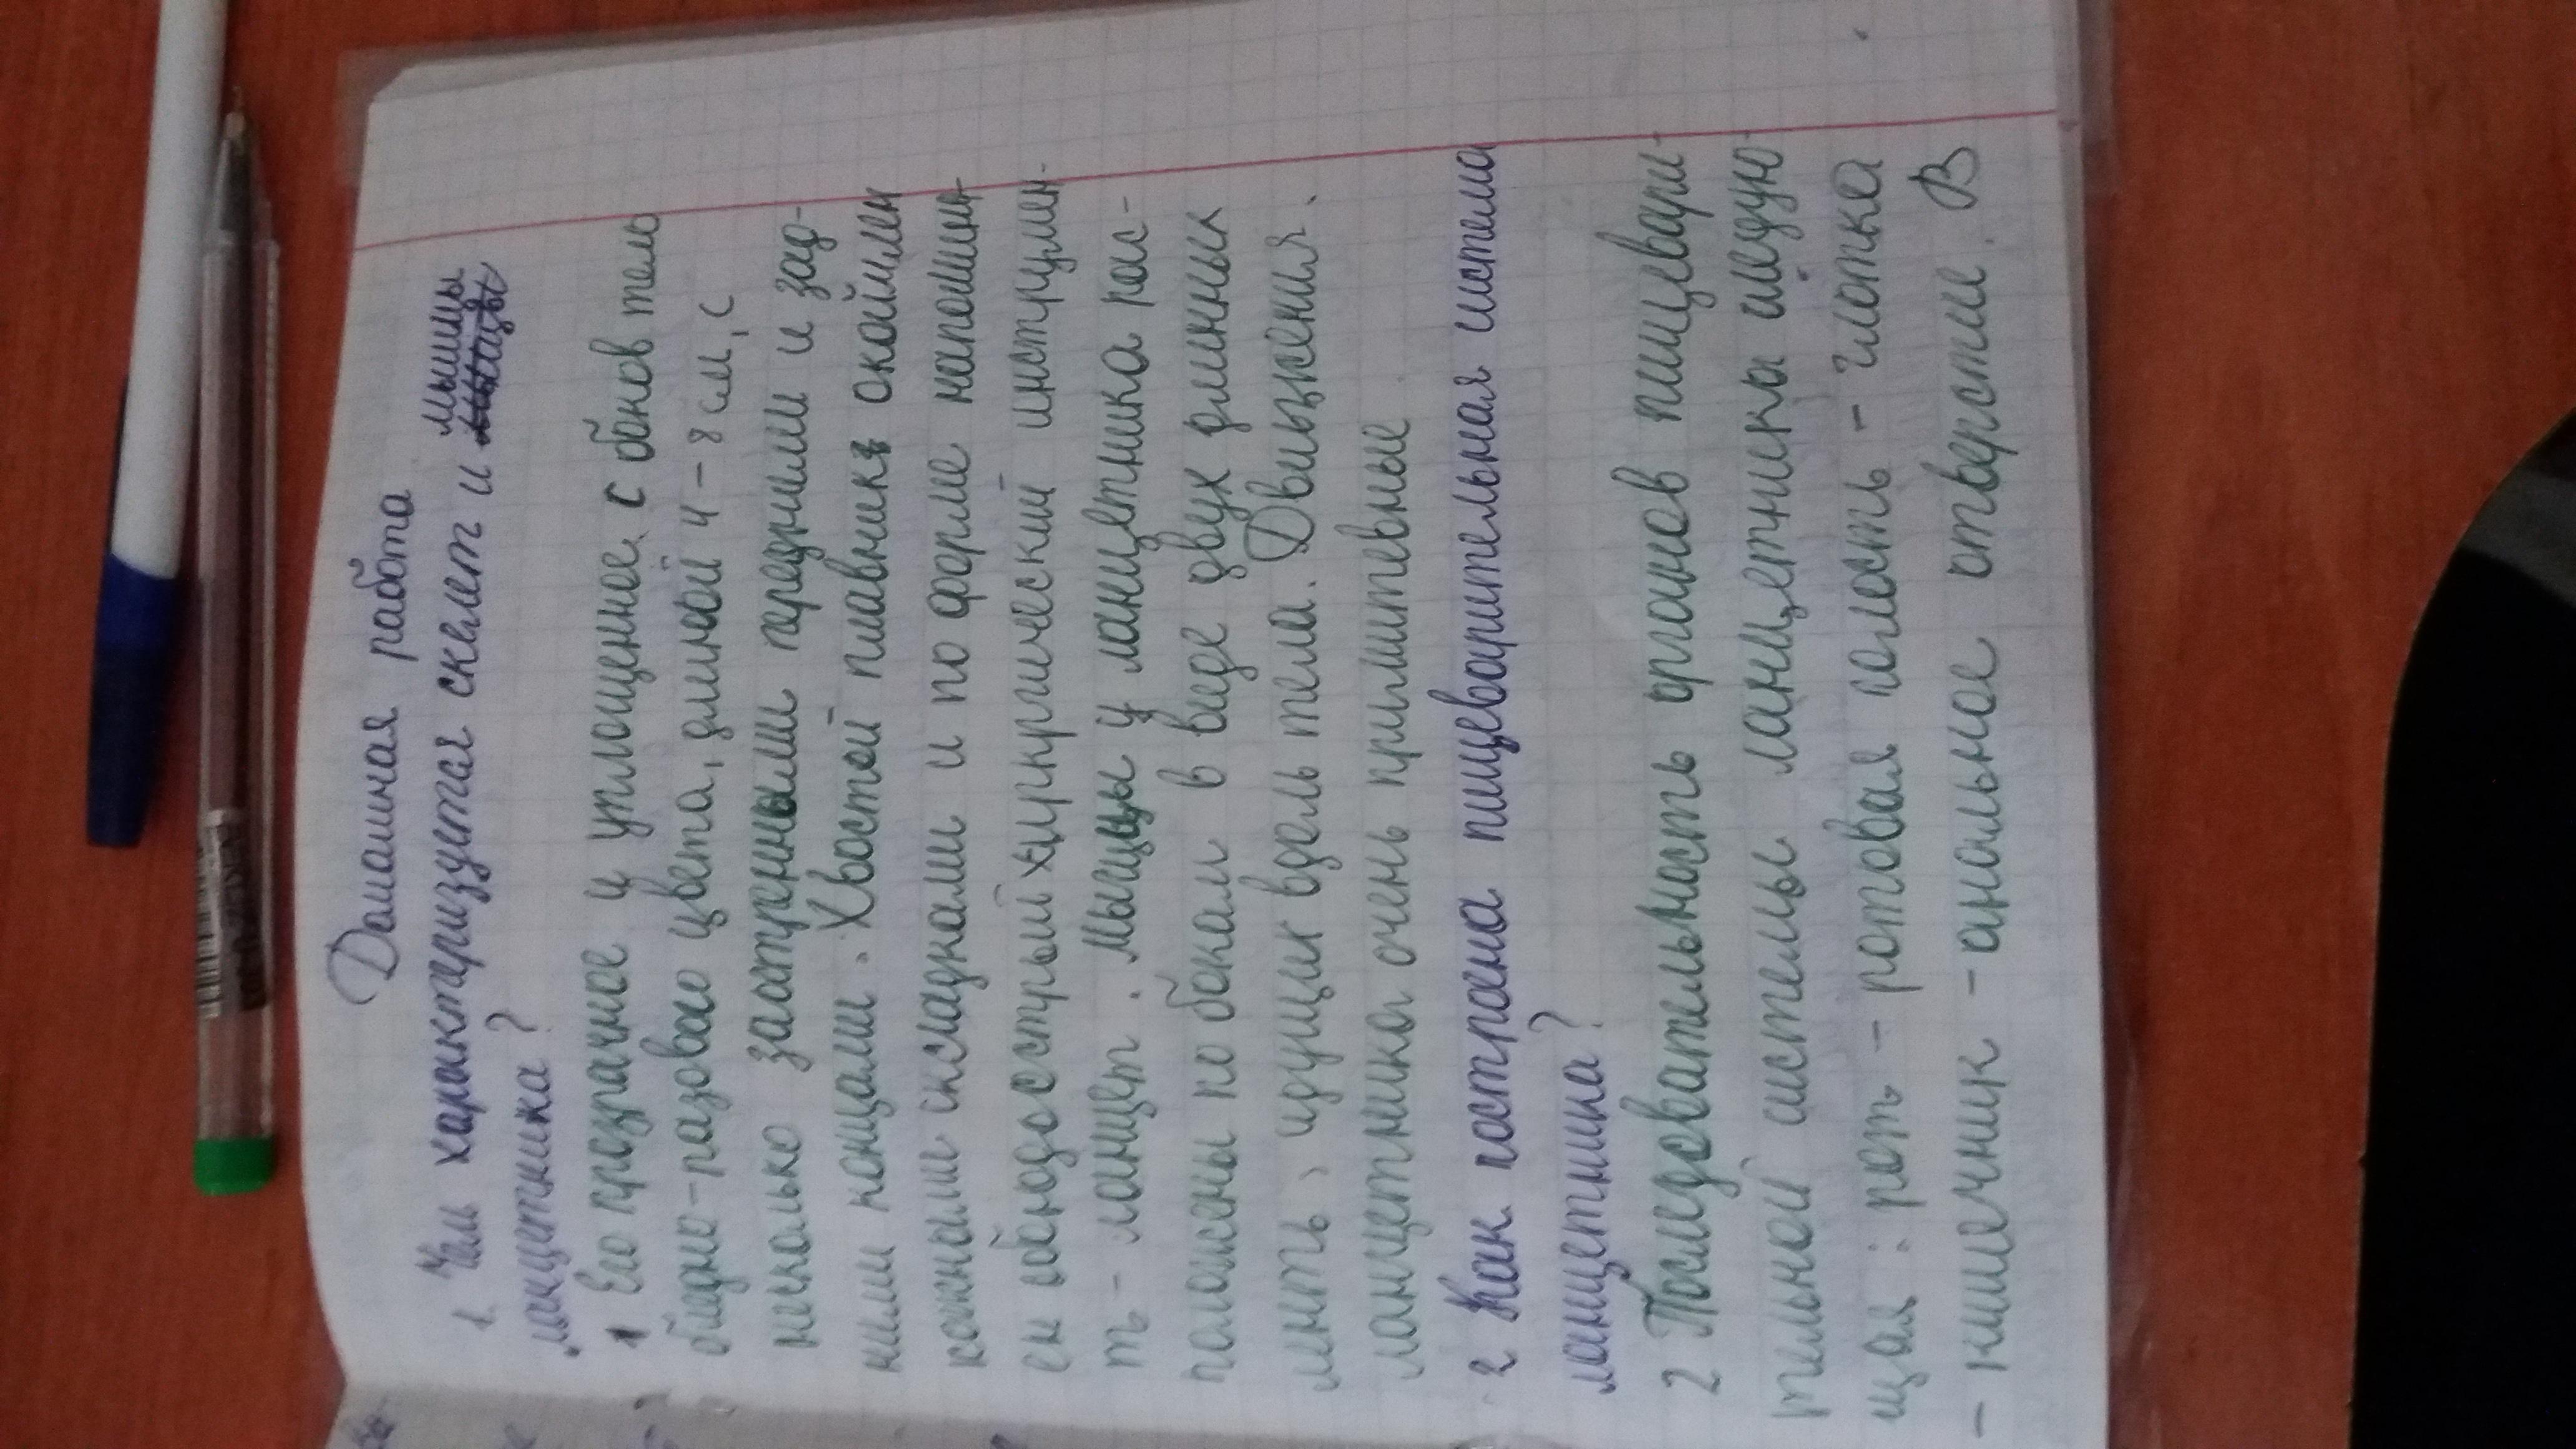 Домашная работа
1. Чем характеризуется скелет и мышцы
ланцетника?
1 Его прозрачное и уплощенное с боков тело
бледно-розового цвета, длиной 4-8 см, с
несколько заостренными передними и зад-
ними концами. Хвостой плавник окоймлен
кожными складками и по форме напомина-
ен обоюдоострый хирургический инструмен-
т - ланцет. Мышцы у ланцетника рас-
положены по бокам в виде двух длинных
лент, идущих вдоль тела. Движжения.
ланцетника очень примитевные
2 Как построена пищеварительная система
ланцетника?
2 Последовательность органов пищевари-
тельной системы ланцетника следую-
щая: рот - ротовая полость - глотка
- кишечник - анальное отверстие. В